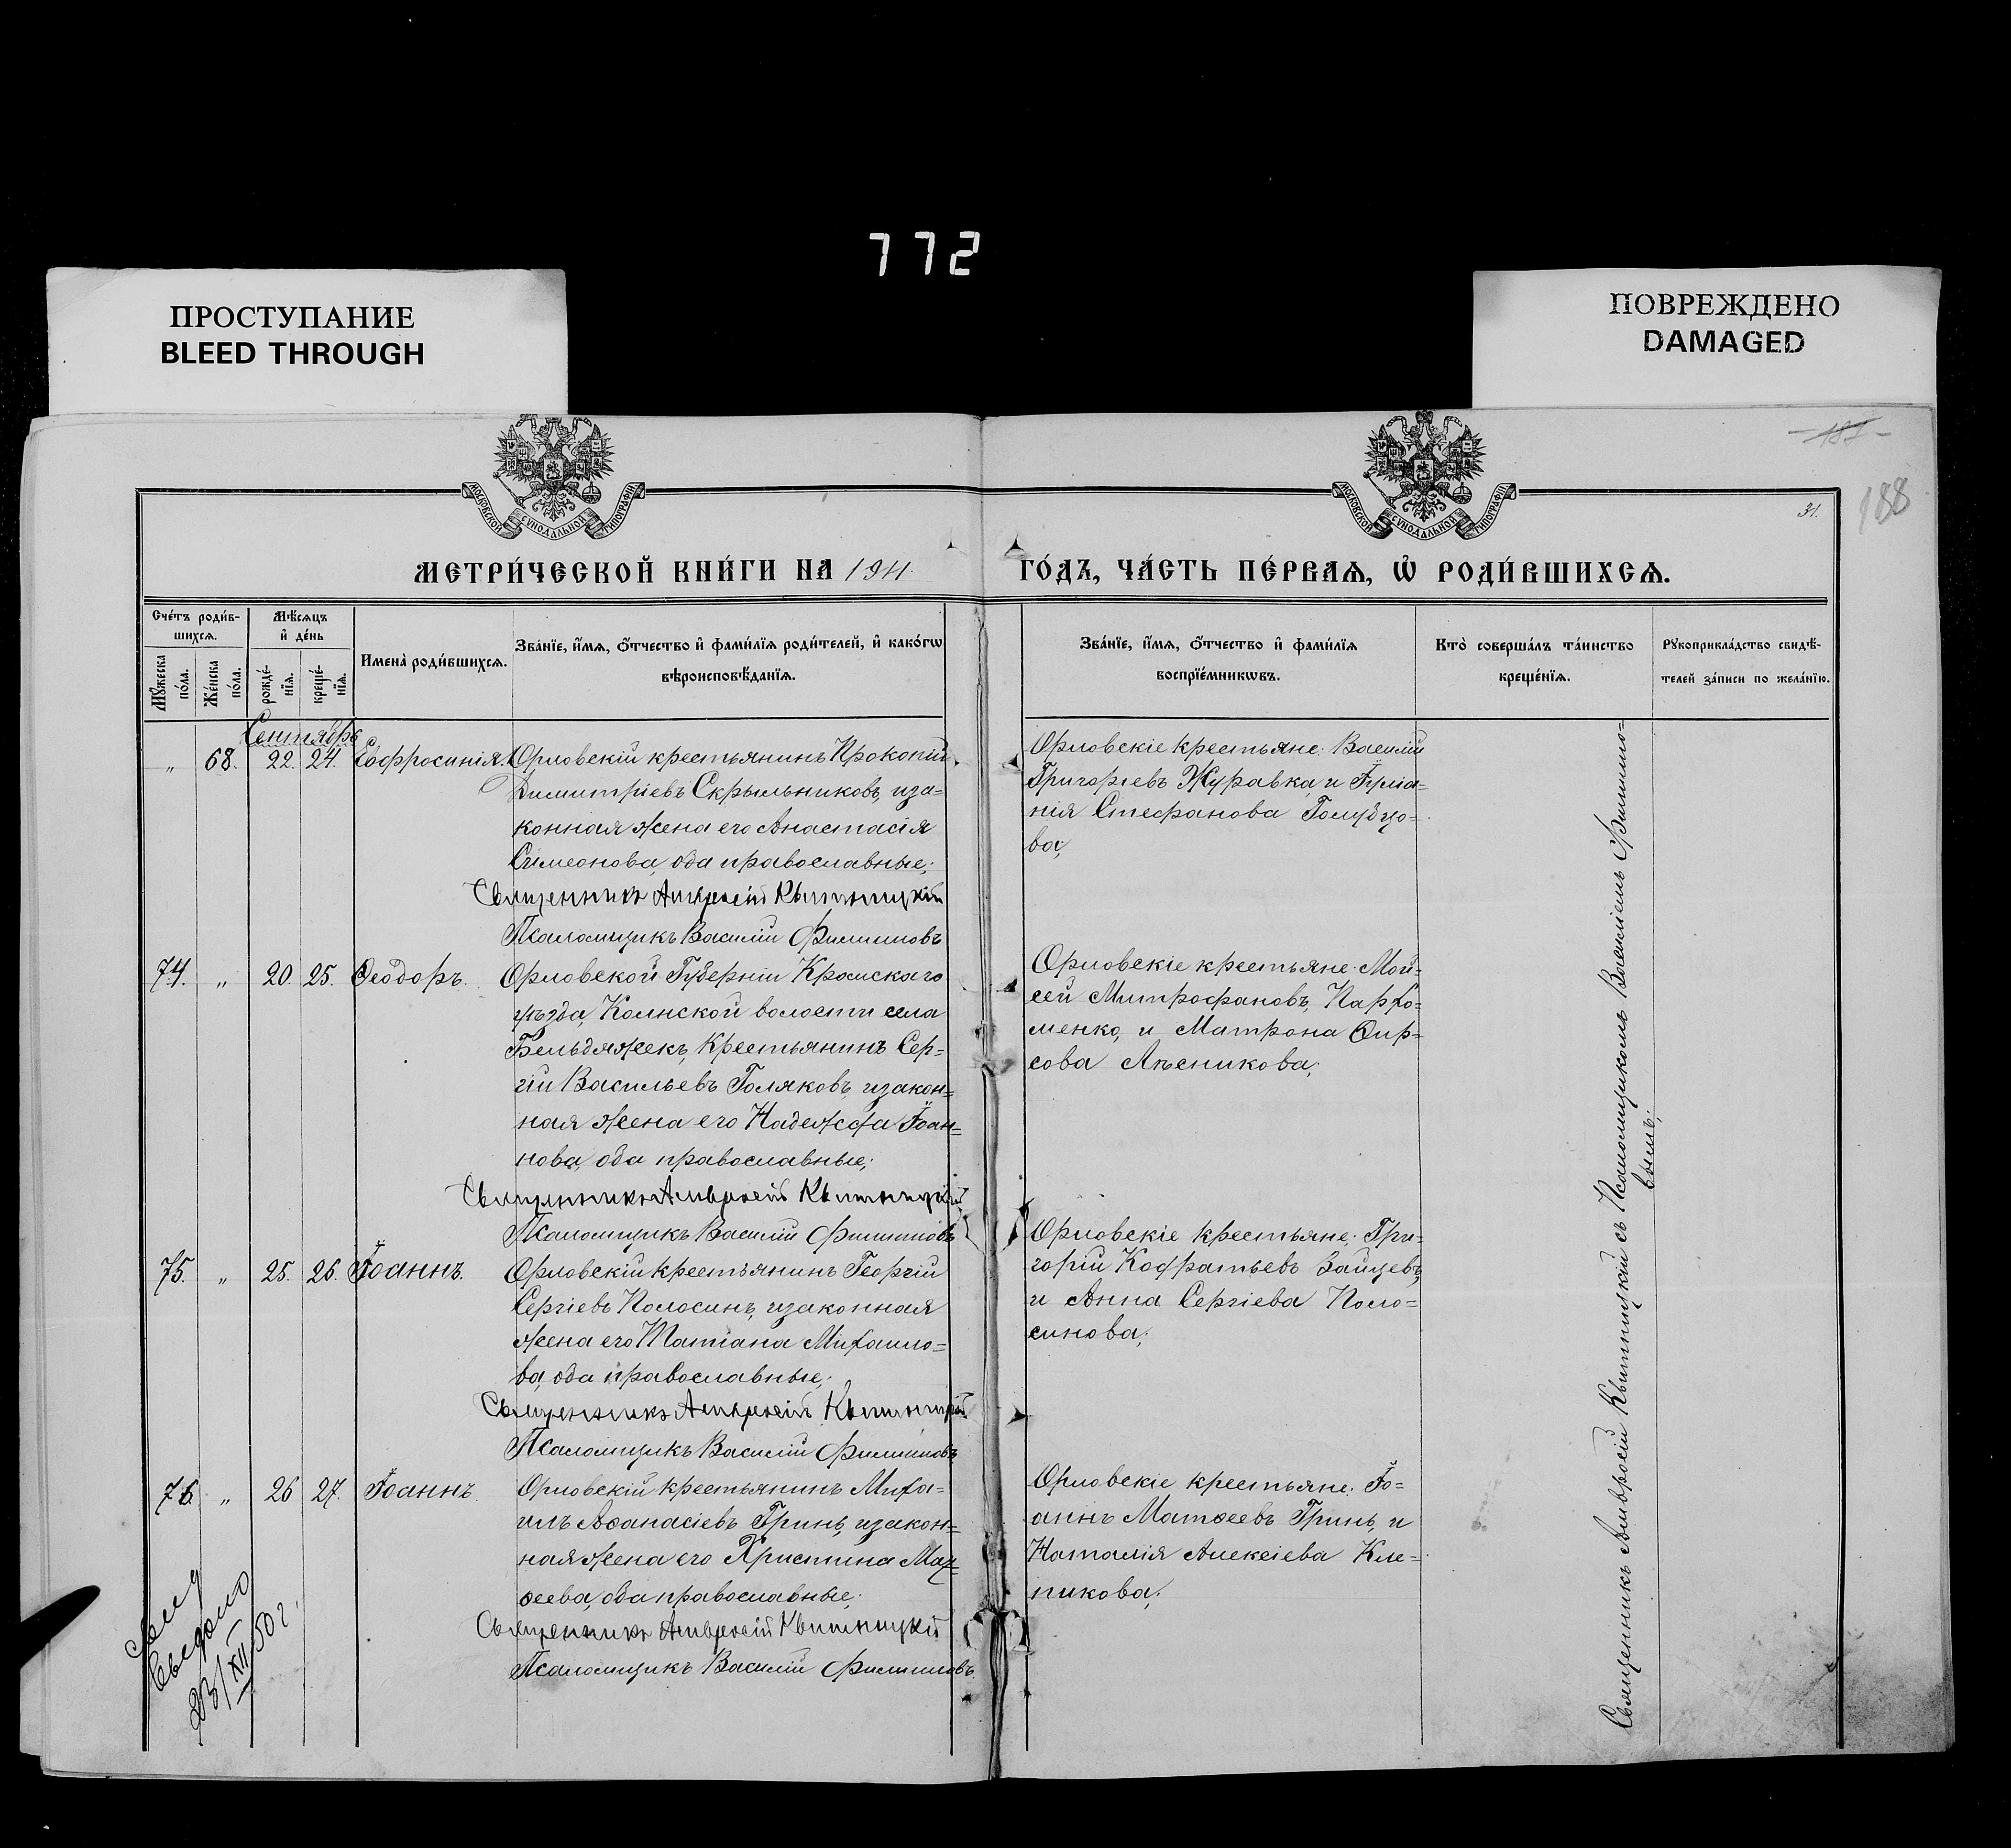 772
ПРОСТУПАНИЕ
BLEED THROUGH
ПОВРЕЖДЕНО
DAMAGED
МОСКОВСКОЙ СѴНОДАЛЬНОЙ ТИПОГРАФІИ
МОСКОВСКОЙ СѴНОДАЛЬНОЙ ТИПОГРАФІИ
187
188
31.
МЕТРИ́ЧЕСКОЙ КНИ́ГИ НА 1911.
ГО́ДЪ, ЧА́СТЬ ПЕ́РВАѦ, Ѡ҆ РОДИ́ВШИХСѦ.
Сче́тъ роди́в-
шихсѧ.
Мꙋ́жеска по́ла.
Же́нска по́ла.
Мѣ́сѧцъ
и҆ де́нь
рожде́-
нїѧ.
креще́-
нїѧ.
Имена̀ роди́вшихсѧ.
Зва́нїе, и҆́мѧ, ѻ҆́тчество и҆ фами́лїѧ роди́телей, и҆ како́гѡ
вѣроисповѣ́данїѧ.
Зва́нїе, и҆́мѧ, ѻ҆́тчество и҆ фами́лїѧ
воспрїе́мникѡвъ.
Кто̀ соверша́лъ та́инство
креще́нїѧ.
Рꙋкоприкла́дство свидѣ́-
телей за́писи по жела́нїю.
Сентябрь
„ 68. 22. 24. Евфросинія.
Орловскій крестьянинъ Прокопій
Димитріевъ Скрыльниковъ, иза-
конная жена его Анастасія
Симеонова, оба православные;
Священникъ Амвросій Квитницкій
Псаломщикъ Василій Филиповъ
Орловскіе крестьяне: Василій
Григоріевъ Журавка, и Іулiа-
нія Стефанова Голубцо-
ва;
74. „ 20. 25. Ѳеодоръ.
Орловской Губерніи Кромскаго
уѣзда, Колнской волости села
Бельдяжекъ, Крестьянинъ Сер-
гій Васильевъ Голяковъ, изакон-
ная жена его Надежда Іоан-
нова, оба православные;
Священникъ Амвросій Квитницкій
Псаломщикъ Василій Филиповъ
Орловскіе крестьяне: Мой-
сей Митрофановъ, Пархо-
менко, и Матрона Ѳир-
сова Лѣсникова;
75. „ 25. 26. Іоаннъ.
Орловскій крестьянинъ Георгій
Сергіевъ Полосинъ, изаконная
жена его Татіана Михаило-
ва, оба православные;
Священникъ Амвросій Квитницкій
Псаломщикъ Василій Филиповъ
Орловскіе крестьяне: Гри-
горій Кодратьевъ Зайцевъ,
и Анна Сергіева Поло-
синова;
76. „ 26 27. Іоаннъ.
Орловскій крестьянинъ Миха-
илъ Аѳанасіевъ Гринь, изакон-
ная жена его Христина Мат-
ѳеева, оба православные;
Священникъ Амвросій Квитницкій
Псаломщикъ Василій Филиповъ
Орловскіе крестьяне: Іо-
аннъ Матѳеевъ Гринь, и
Наталія Алексіева Кле-
пикова;
Священникъ Амвросій Квитницкій съ Псаломщикомъ Василіемъ Филипо-
вымъ;
23/XII 50 г.